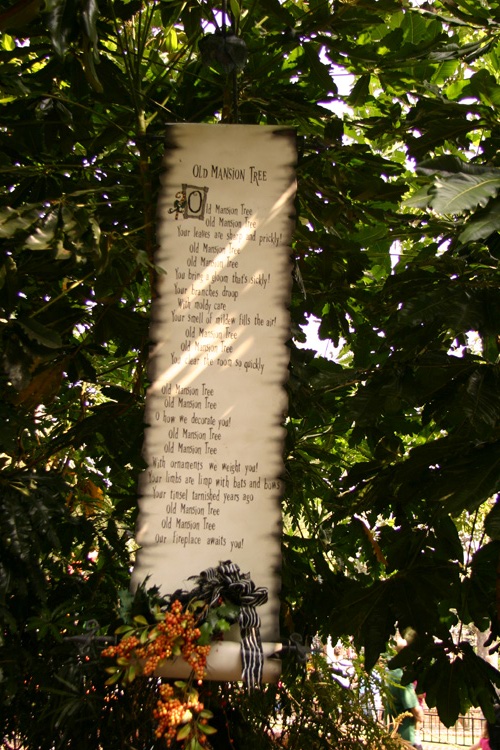 Old Mansion Tree
Old Mansion Tree
Old Mansion Tree
Your leaves are sharp and prickly!
Old Mansion Tree
Old Mansion Tree
You bring a gloom that's sickly!
Your branches droop
With moldy care
Your smell of mildew fills the air!
Old Mansion Tree
Old Mansion Tree
You clear the room so quickly
Old Mansion Tree
Old Mansion Tree
O how we decorate you!
Old Mansion Tree
Old Mansion Tree
With ornaments we weight you!
Your limbs are limp with bats and bows
Your tinsel tarnished years ago
Old Mansion Tree
Old Mansion Tree
Our fireplace awaits you!